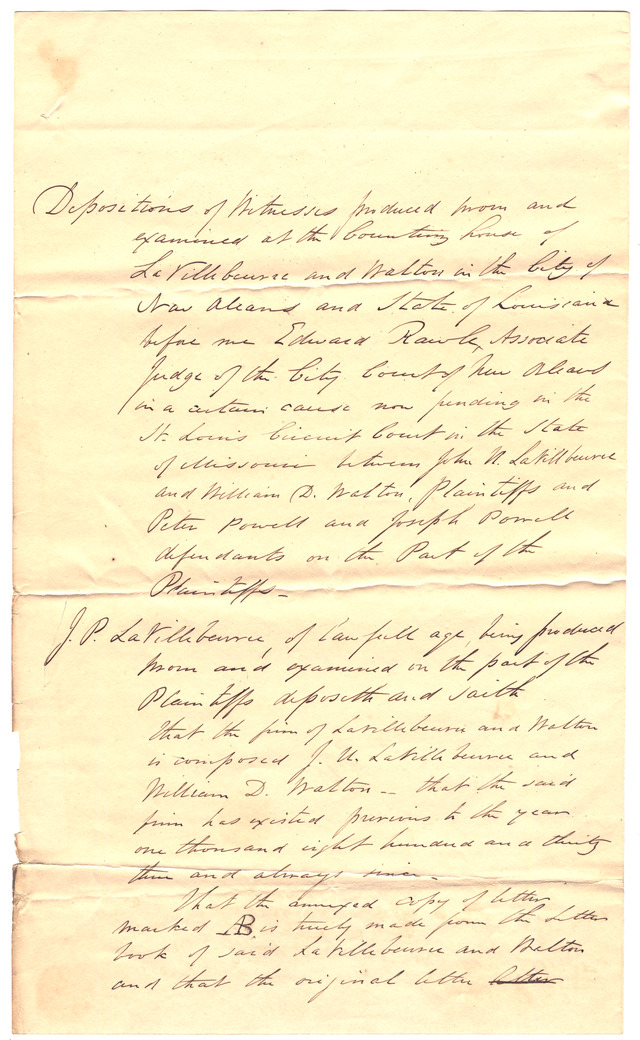 Depositions of Witnesses produced sworn and
examined at the Counting house of
LaVillebeuvre and Walton in the City of
New Orleans and State of Louisiana
before me Edward Rawle, Associate
Judge of the City Court of New Orleans
in a certain cause now pending in the
St. Louis Circuit Court in the State
of Missouri between John U. LaVillbeuvre
and William D. Walton, Plaintiffs and
Peter Powell and Joseph Powell
defendants on the Part of the
Plaintiffs -
J. P. LaVillebeuvre, of lawfull age, being produced
sworn and examined on the part of the
Plaintiffs deposeth and saith
that the firm of LaVillebeuvre and Walton
is composed J. U. LaVillebeuvre and
William D. Walton - that the said
firm has existed previous to the year
one thousand eight hundred and thirty
three and always since -
That the annexed copy of letter
marked B, is truly made from the Letter
book of said LaVillebeuvre and Walton
and that the original letter